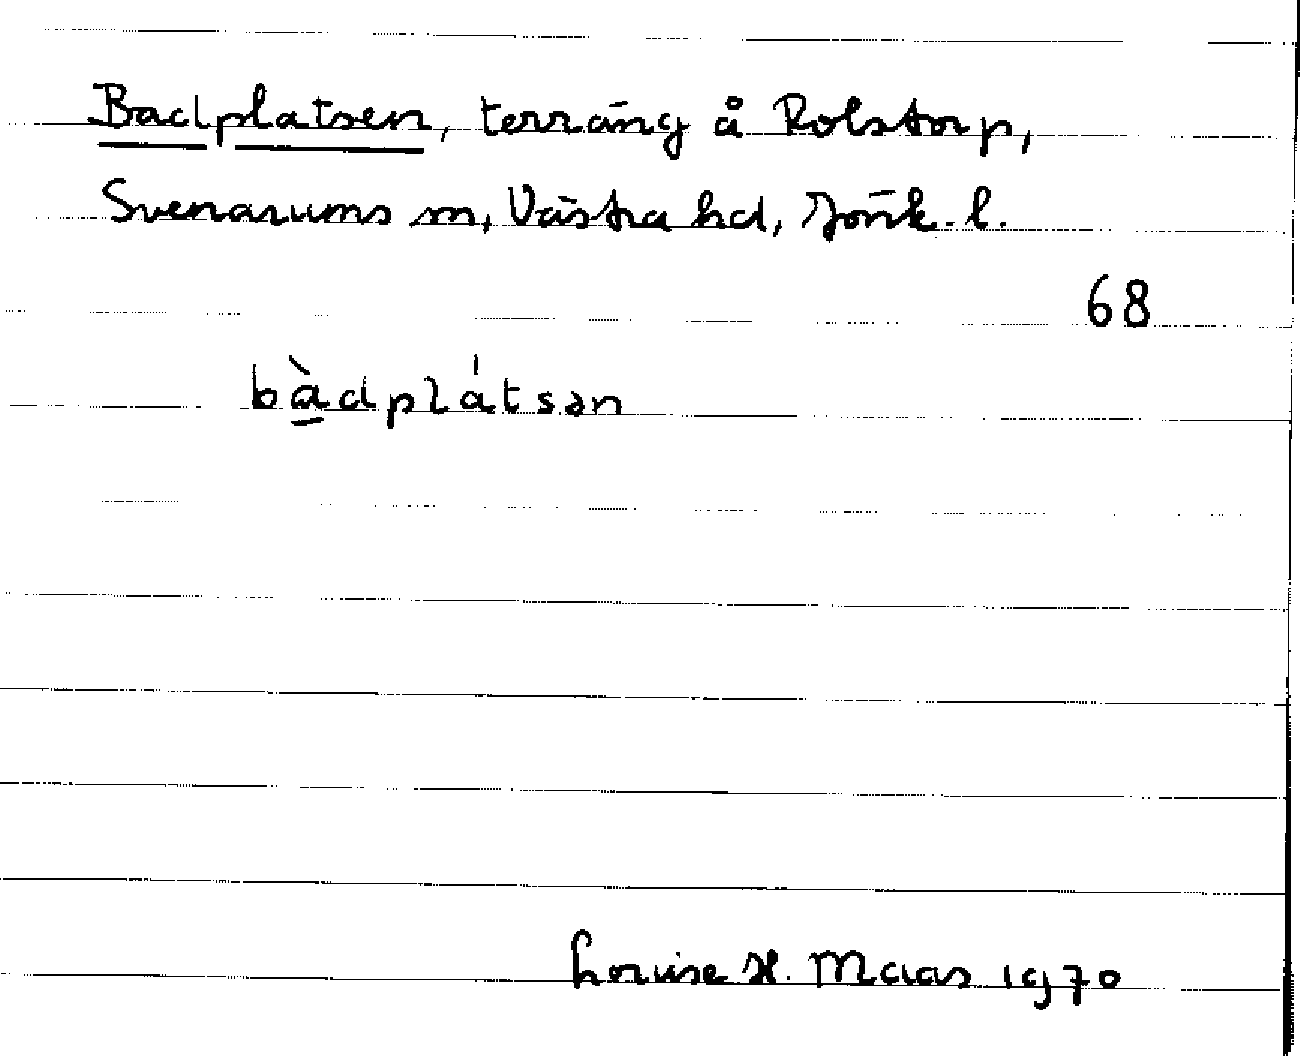 Badplatsen, terräng å Rolstorp,
Svenarums sn, Västra hd, Jönk. l.
68
bàdplátsən
Louise H. Maas 1970